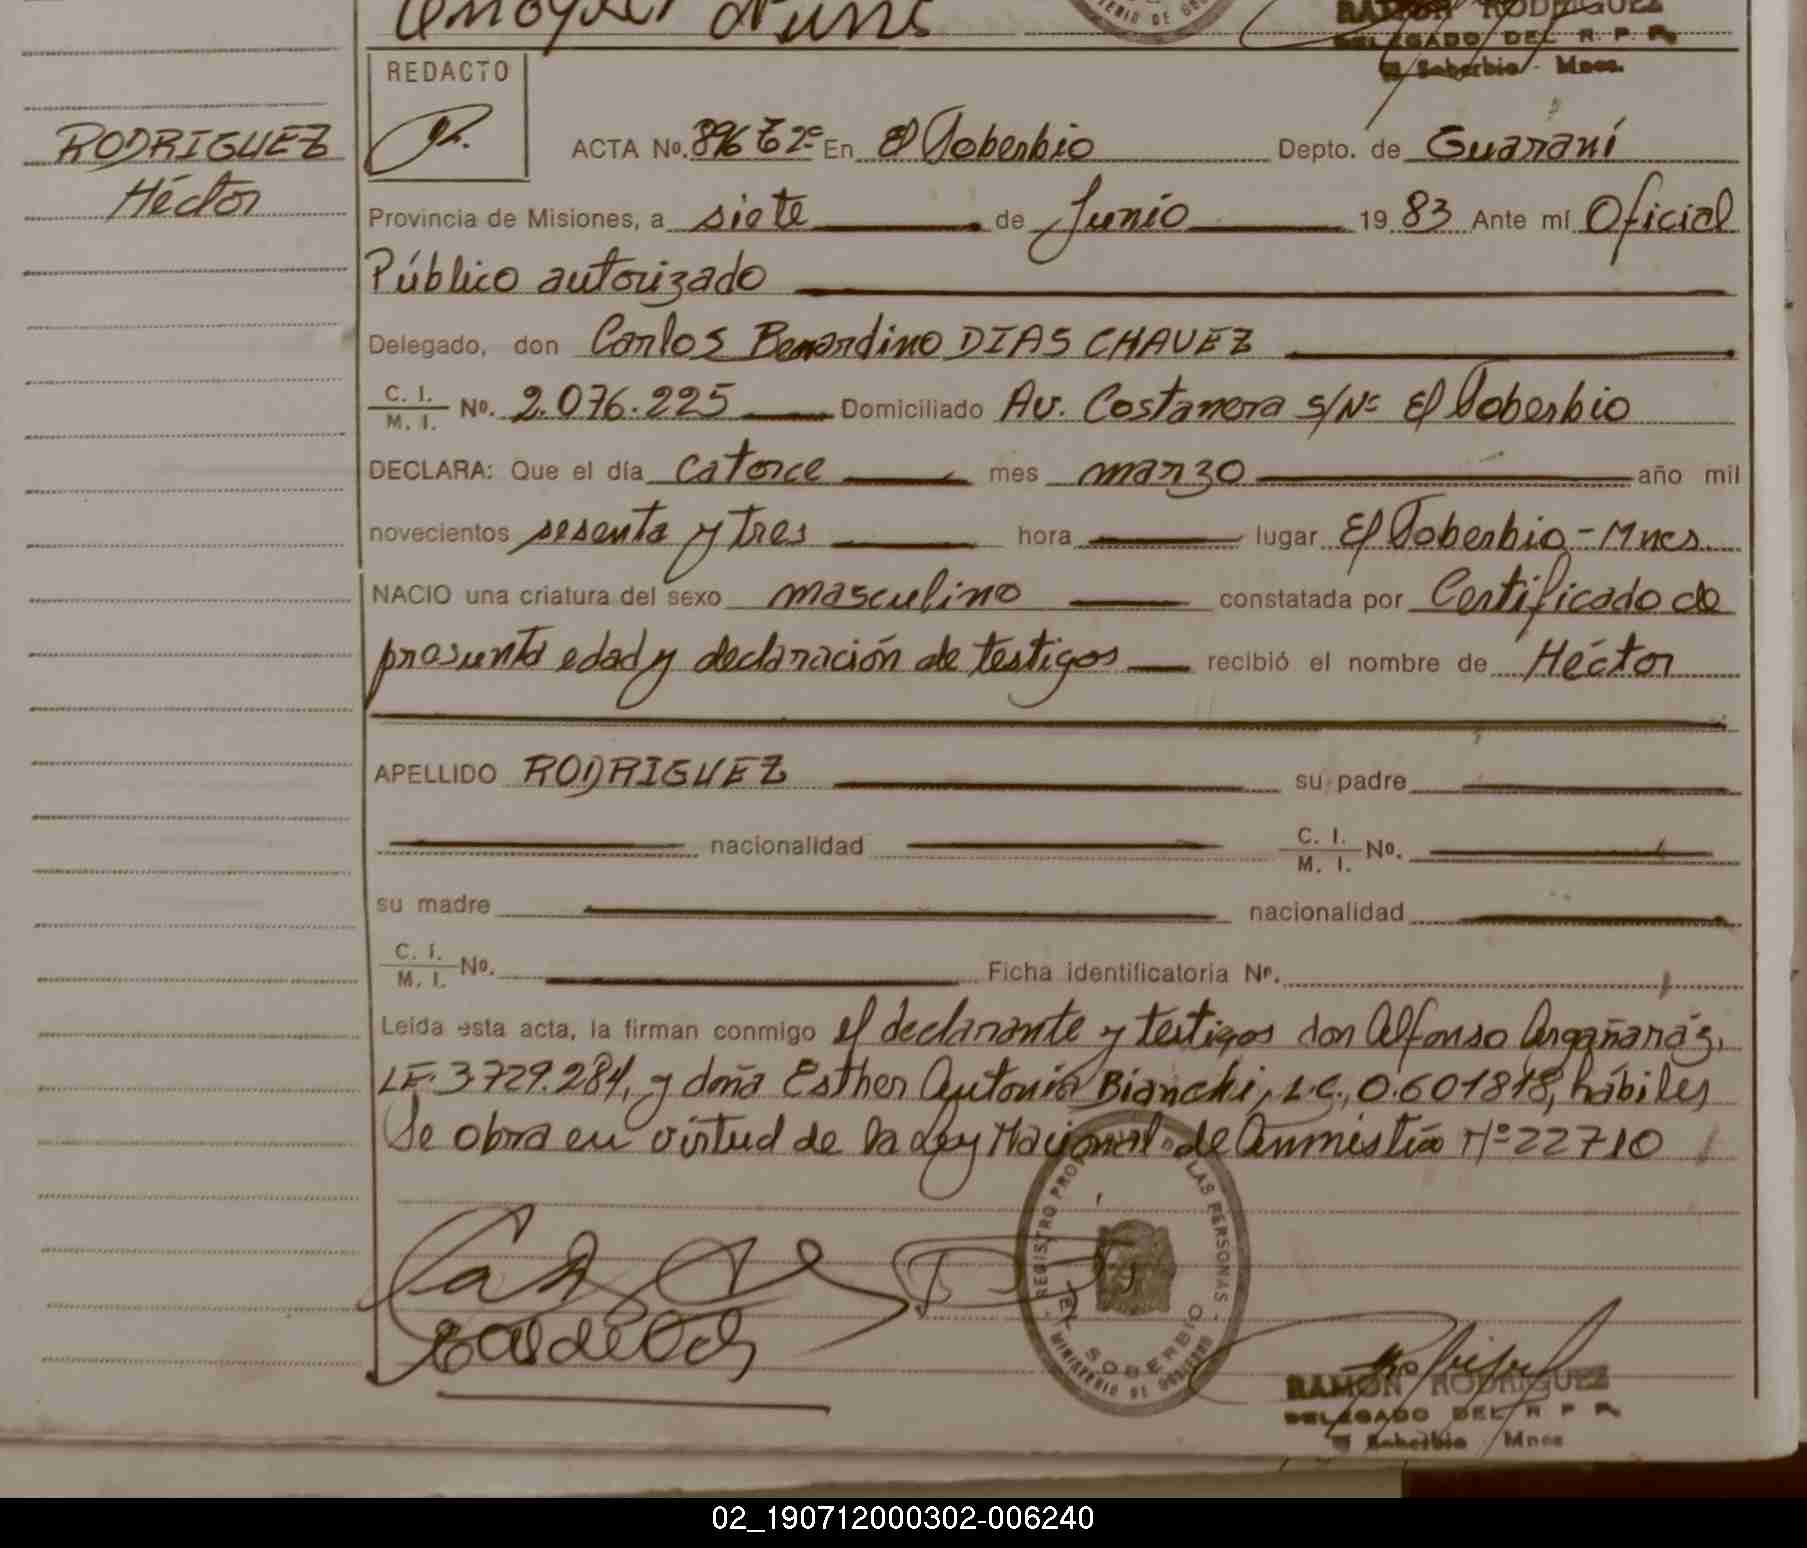 RAMON RODRIGUEZ
DELEGADO DEL R. P. P.
El Soberbio - Mnes.
REDACTO
RODRIGUEZ
Héctor
ACTA No. 896 T 2º En El Soberbio Depto. de Guaraní
Provincia de Misiones, a siete de Junio 19 83 Ante mí Oficial
Público autorizado
Delegado, don Carlos Bernardino DIAS CHAVEZ
C. I.
M. I. No. 2.076.225 Domiciliado Av. Costanera s/Nº El Soberbio
DECLARA: Que el día catorce mes marzo año mil
novecientos sesenta y tres hora lugar El Soberbio - Mnes.
NACIO una criatura del sexo masculino constatada por Certificado de
presunta edad y declaración de testigos recibió el nombre de Héctor
APELLIDO RODRIGUEZ su padre
nacionalidad C. I.
M. I. No.
su madre nacionalidad
C. I.
M. I. No. Ficha identificatoria Nº.
Leída esta acta, la firman conmigo el declarante y testigos don Alfonso Argañaráz,
LE. 3.729.284, y doña Esther Antonia Bianchi, L.C., 0.601818, hábiles
Se obra en virtud de la Ley Nacional de Amnistía Nº 22710
REGISTRO PROV. DE LAS PERSONAS
EL SOBERBIO
MINISTERIO DE GOBIERNO
RAMON RODRIGUEZ
DELEGADO DEL R P P.
El Soberbio Mnes
02_190712000302-006240